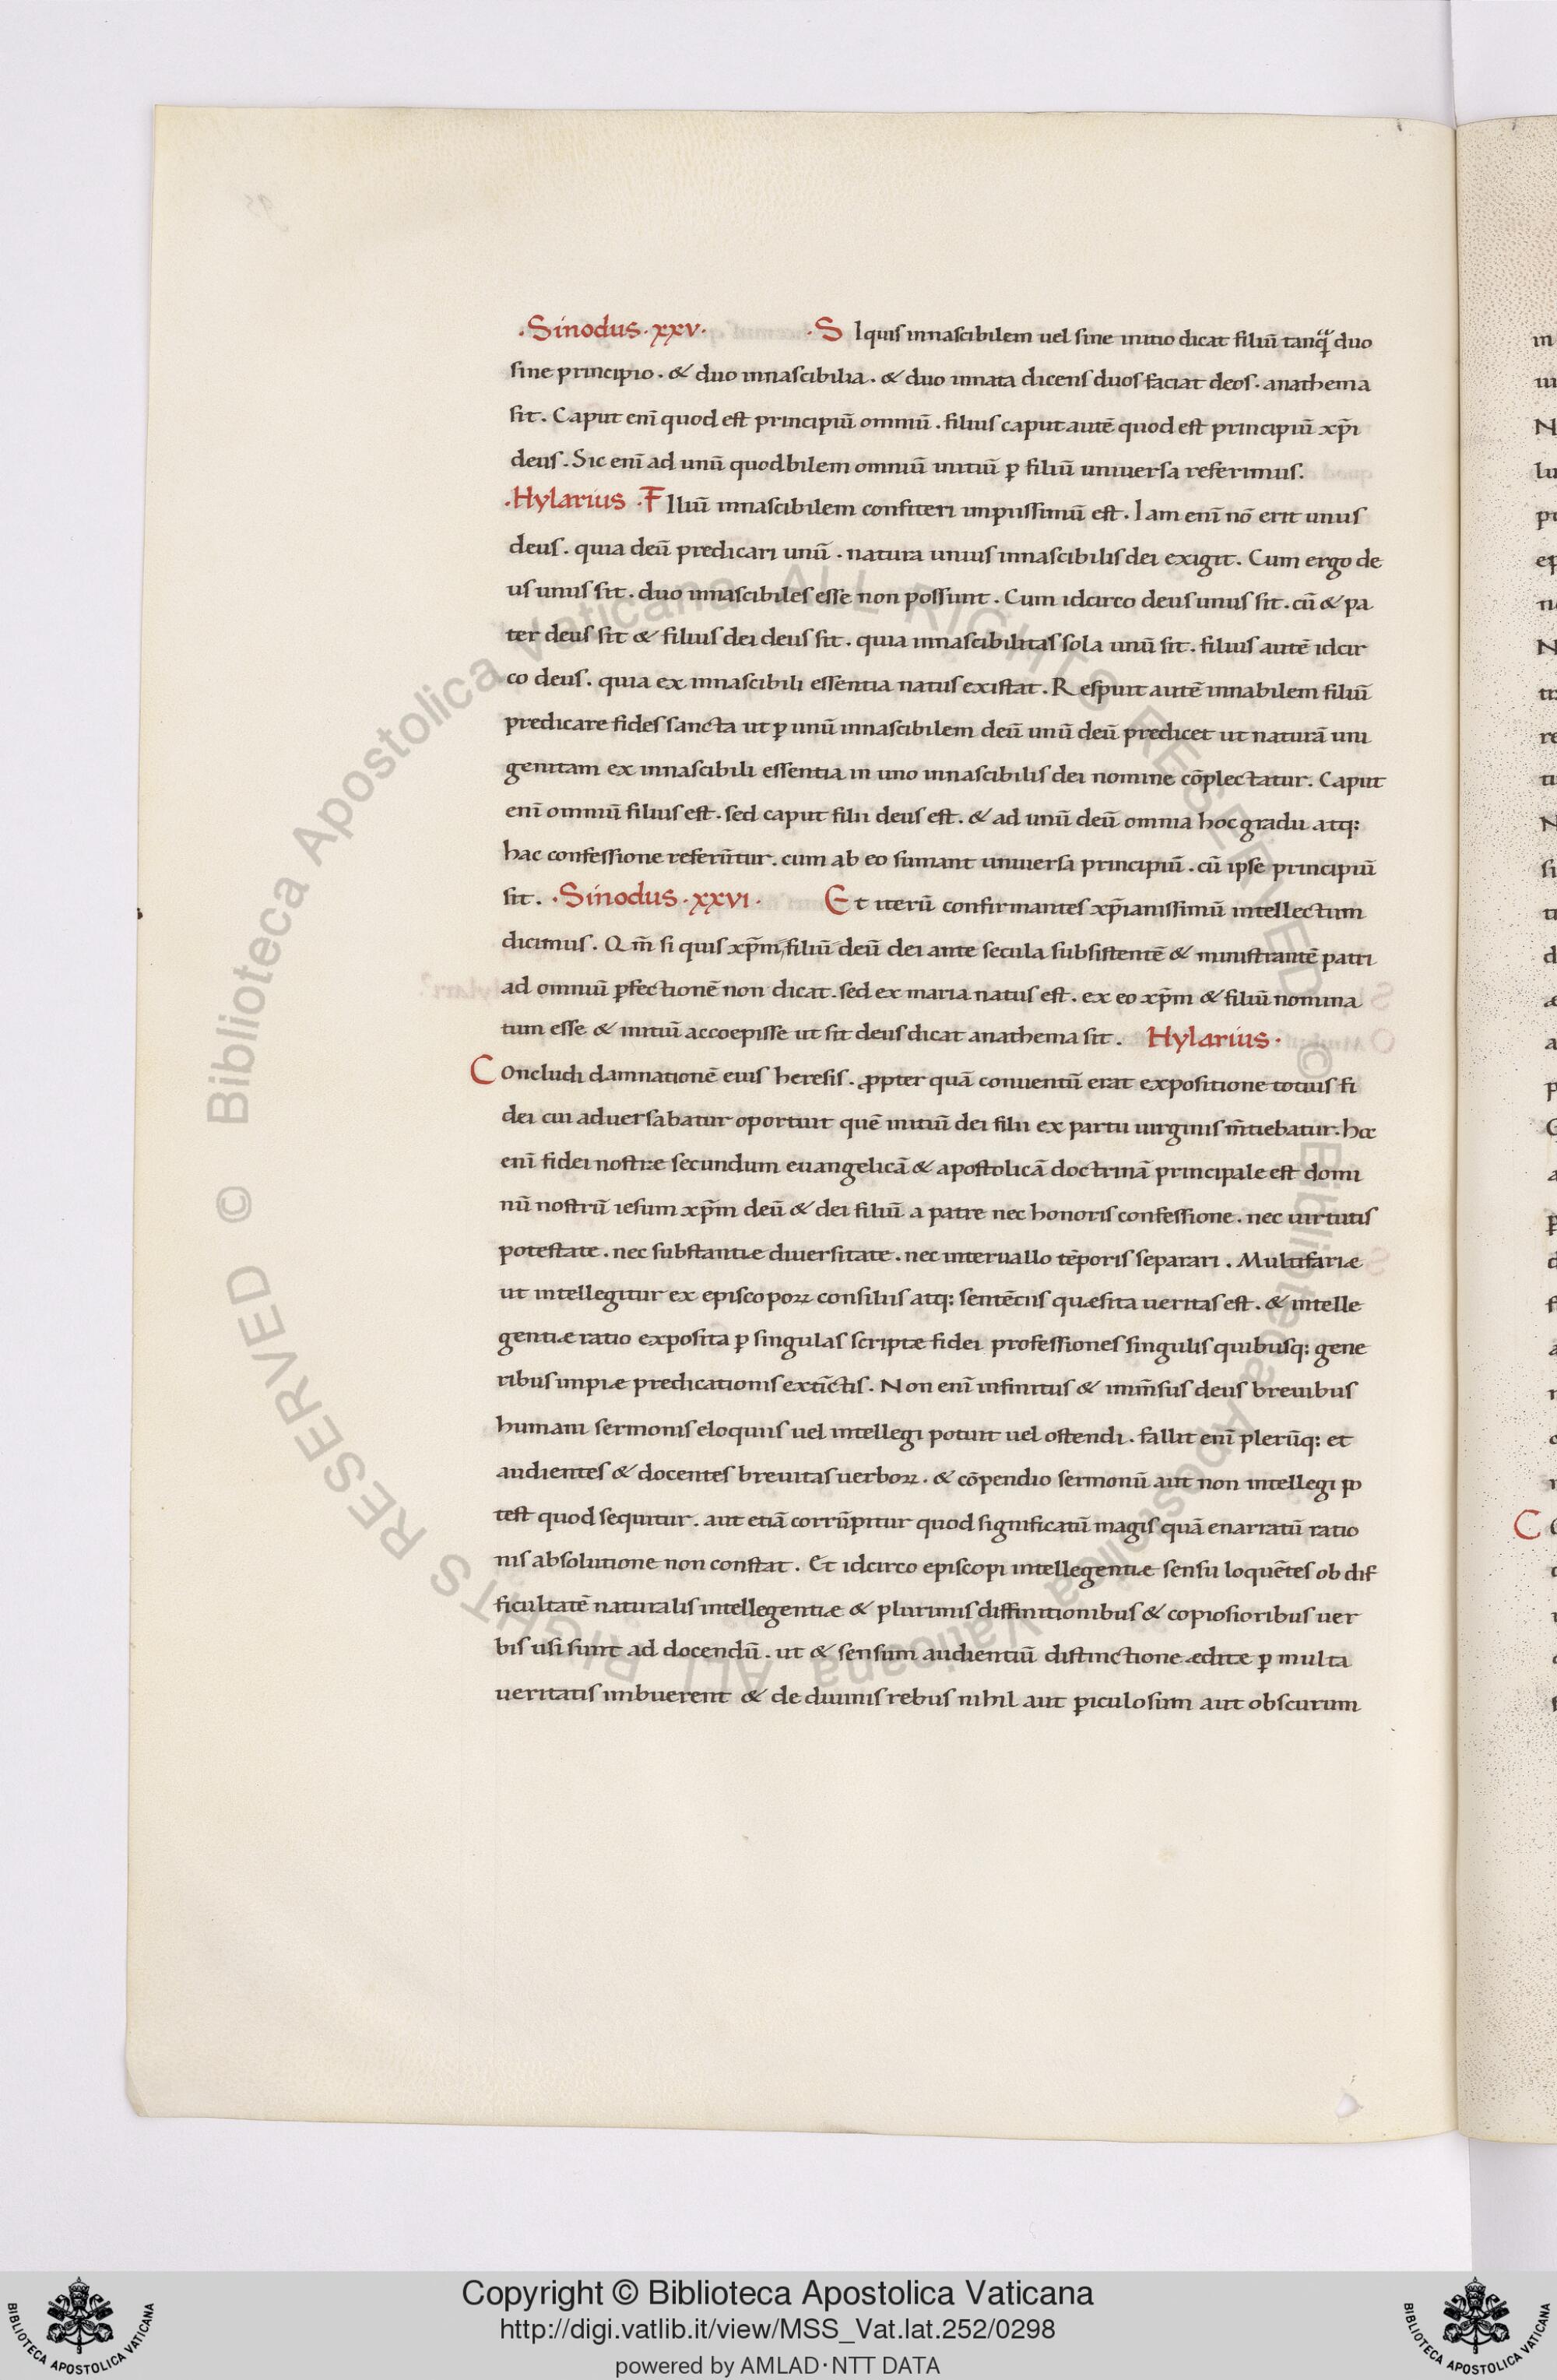 ·Sinodus·xxv· ·S Iquis innascibilem uel sine initio dicat filiū tanq̃ duo
sine principio. & duo innascibilia. & duo innata dicens duos faciat deos. anathema
sit. Caput enī quod est principiū omniū. filius caput autē quod est principiū xp̃i
deus. Sic enī ad unū quodbilem omniū initiū ꝑ filiū uniuersa referimus.
·Hylarius ·F Iliū innascibilem confiteri impiissimū est. Iam enī nō erit unus
deus. quia deū predicari unū. natura unius innascibilis dei exigit. Cum ergo de
us unus sit. duo innascibiles esse non possunt. Cum idcirco deus unus sit. cū & pa
ter deus sit & filius dei deus sit. quia innascibilitas sola unū sit. filius autē idcir
co deus. quia ex innascibili essentia natus existat. Respuit autē innabilem filiū
predicare fides sancta ut ꝑ unū innascibilem deū unū deū predicet ut naturā uni
genitam ex innascibili essentia in uno innascibilis dei nomine cōplectatur. Caput
enī omniū filius est. sed caput filii deus est. & ad unū deū omnia hoc gradu atq:
hac confessione referūtur. cum ab eo sumant uniuersa principiū. cū ipse principiū
sit. ·Sinodus·xxvi· Et iterū confirmantes xp̃ianissimū intellectum
dicimus. Qm̃ si quis xp̃m filiū deū dei ante secula subsistentē & ministrantē patri
ad omniū ꝑfectionē non dicat. sed ex maria natus est. ex eo xp̃m & filiū nomina
tum esse & initiū accoepisse ut sit deus dicat anathema sit. Hylarius·
Concludi damnationē eius heresis. ꝓpter quā conuentū erat expositione totius fi
dei cui aduersabatur oportuit quē initiū dei filii ex partu uirginis m̃tiebatur. hoc
enī fidei nostræ secundum euangelicā & apostolicā doctrinā principale est domi
nū nostrū iesum xp̃m deū & dei filiū a patre nec honoris confessione. nec uirtutis
potestate. nec substantiæ diuersitate. nec interuallo tēporis separari. Multifariæ
ut intellegitur ex episcopoꝝ consiliis atq: sentēciis quæsita ueritas est. & intelle
gentiæ ratio exposita ꝑ singulas scriptæ fidei professiones singulis quibusq: gene
ribus impiæ predicationis extīctis. Non enī infinitus & imm̃sus deus breuibus
humani sermonis eloquiis uel intellegi potuit uel ostendi. fallit enī plerūq: et
audientes & docentes breuitas uerboꝝ. & cōpendio sermonū aut non intellegi po
test quod sequitur. aut etiā corrūpitur quod significatū magis quā enarratū ratio
nis absolutione non constat. Et idcirco episcopi intellegentiæ sensu loquētes ob dif
ficultatē naturalis intellegentiæ & plurimis diffinitionibus & copiosioribus uer
bis usi sunt ad docendū. ut & sensum audientiū distinctione æditæ ꝑ multa
ueritatis imbuerent & de diuinis rebus nihil aut ꝑiculosum aut obscurum
Copyright © Biblioteca Apostolica Vaticana
http://digi.vatlib.it/view/MSS_Vat.lat.252/0298
powered by AMLAD·NTT DATA